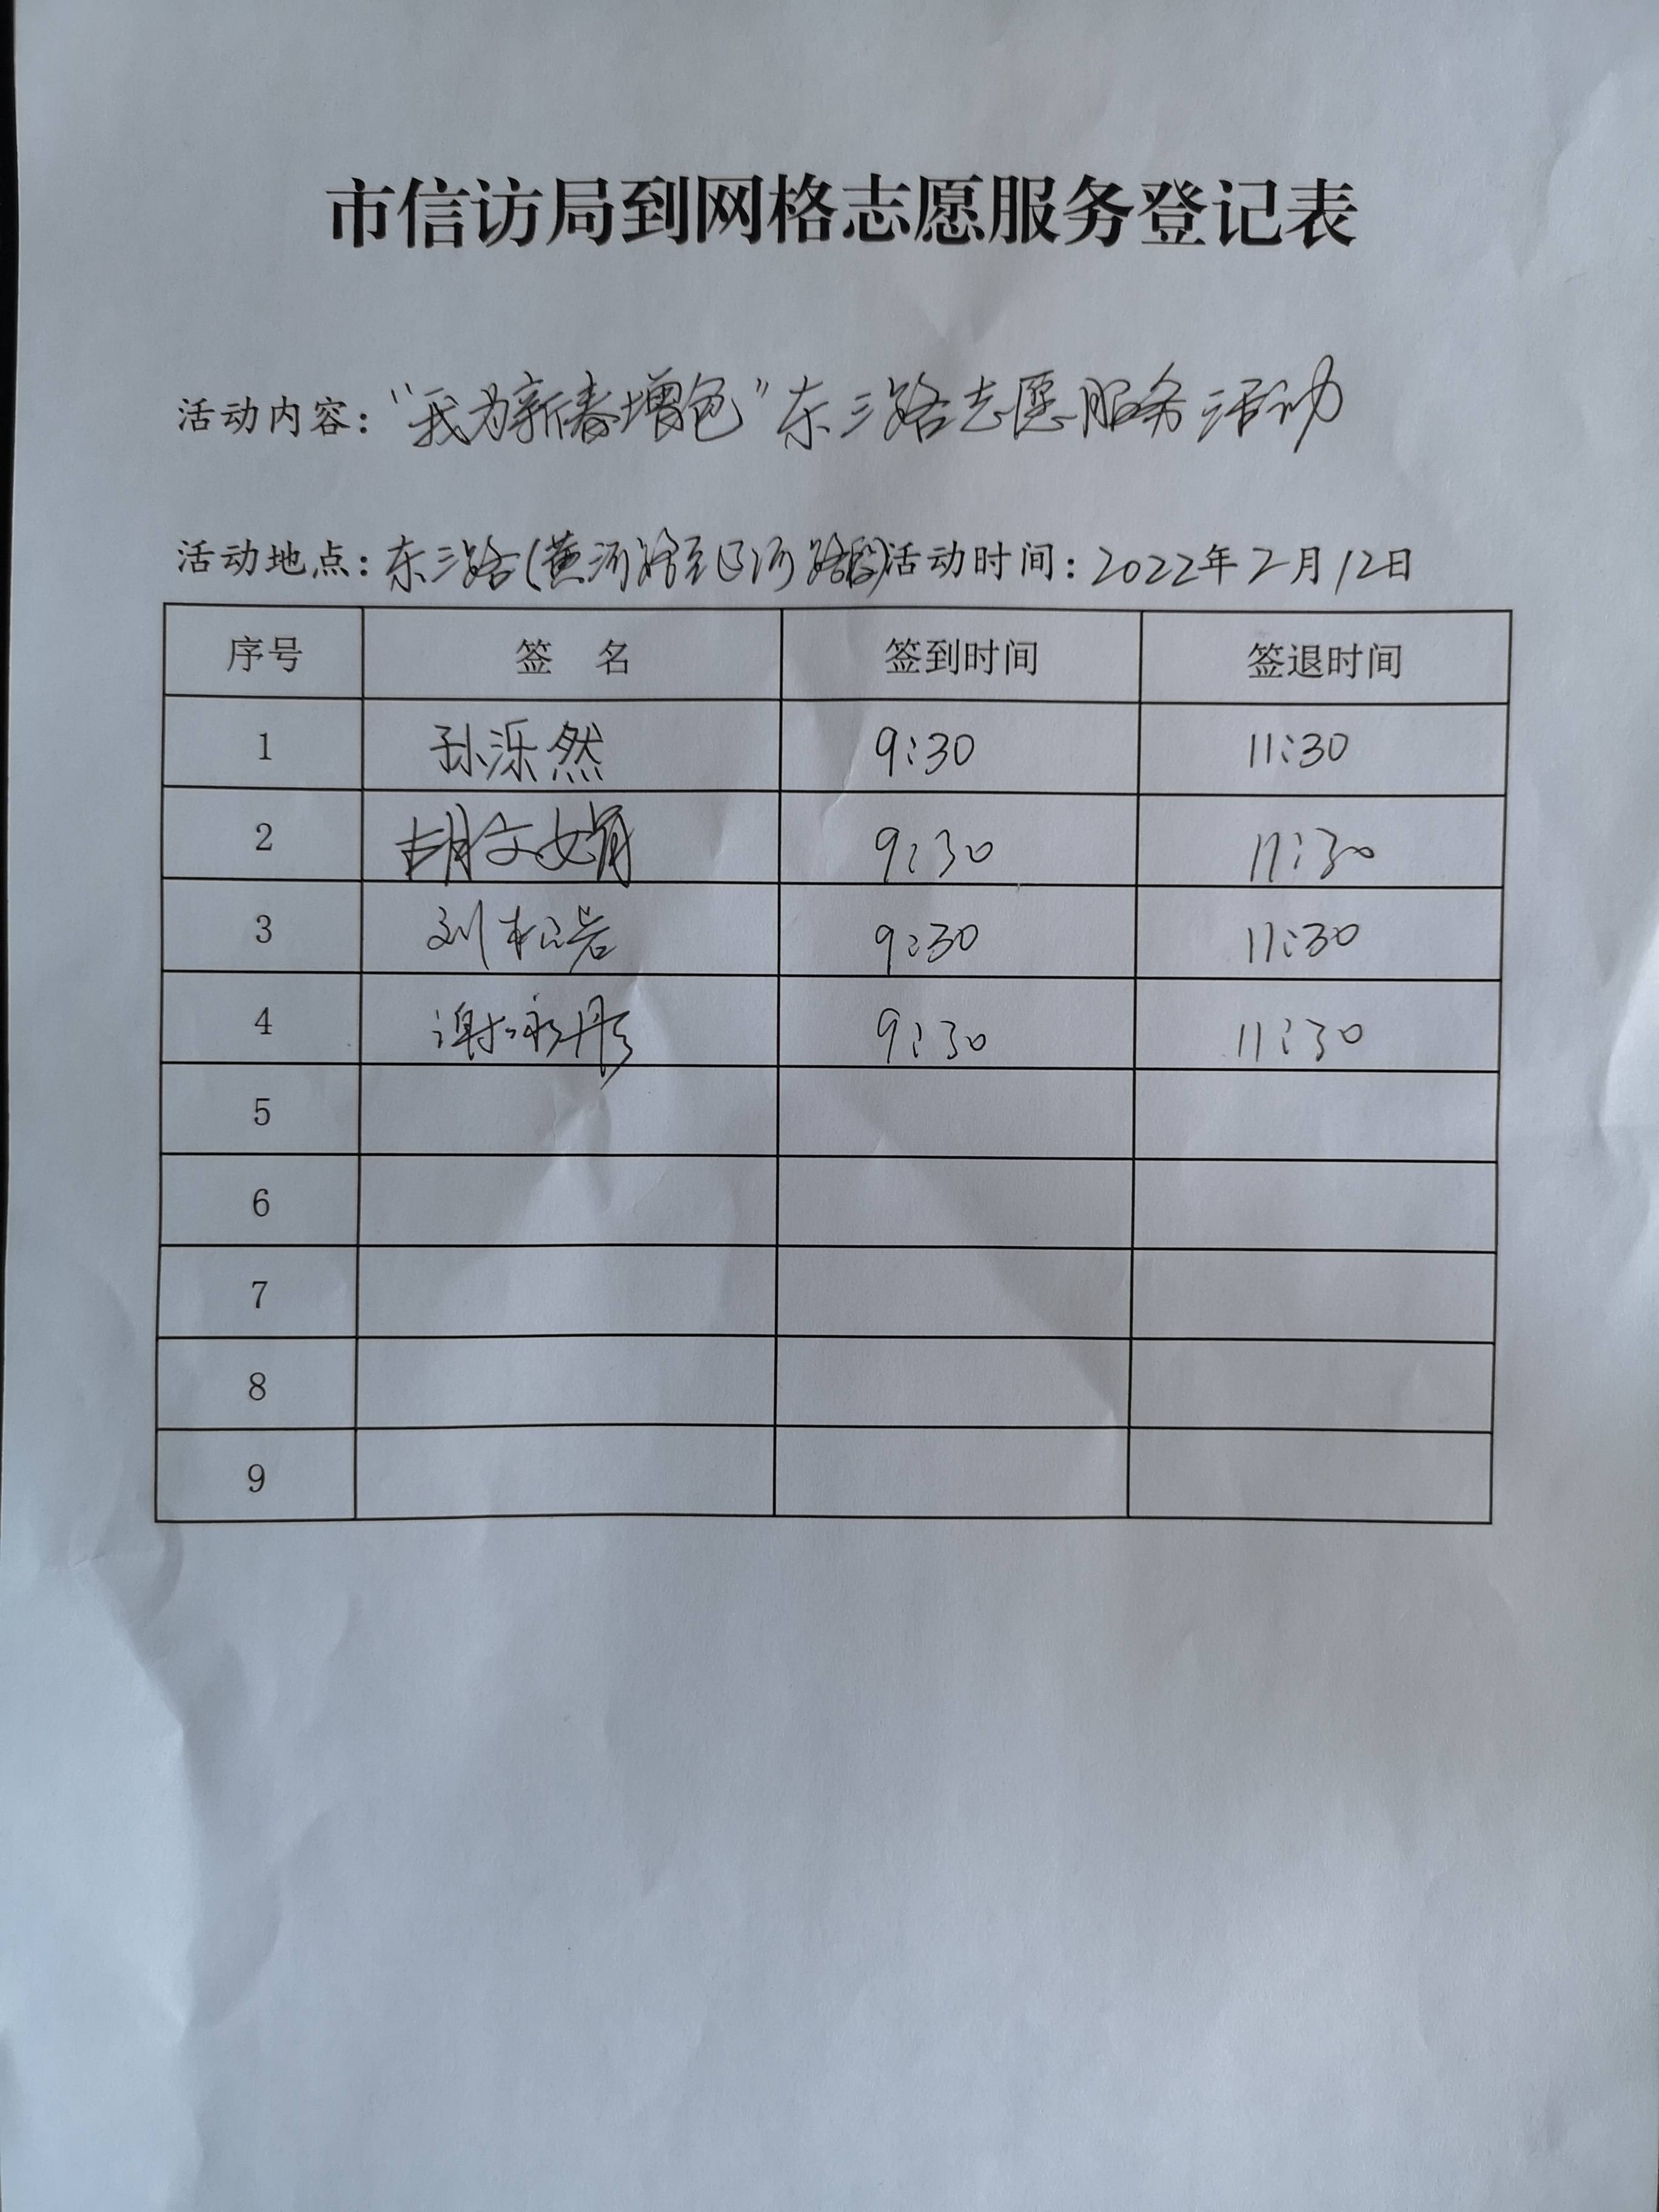 市信访局到网格志愿服务登记表
活动内容：“我为新春增色”东三路志愿服务活动
活动地点：东三路（黄河路至辽河路段）活动时间：2022年2月12日
序号 签 名 签到时间 签退时间
1 孙泺然 9:30 11:30
2 胡文娟 9:30 11:30
3 刘松岩 9:30 11:30
4 谢咏彤 9:30 11:30
5
6
7
8
9